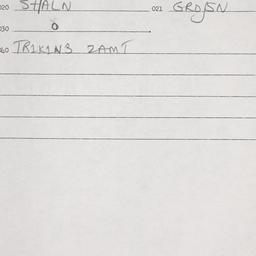 020 STALN 021 GRDJSN
030 0
060 TR1K1NS 2AMT